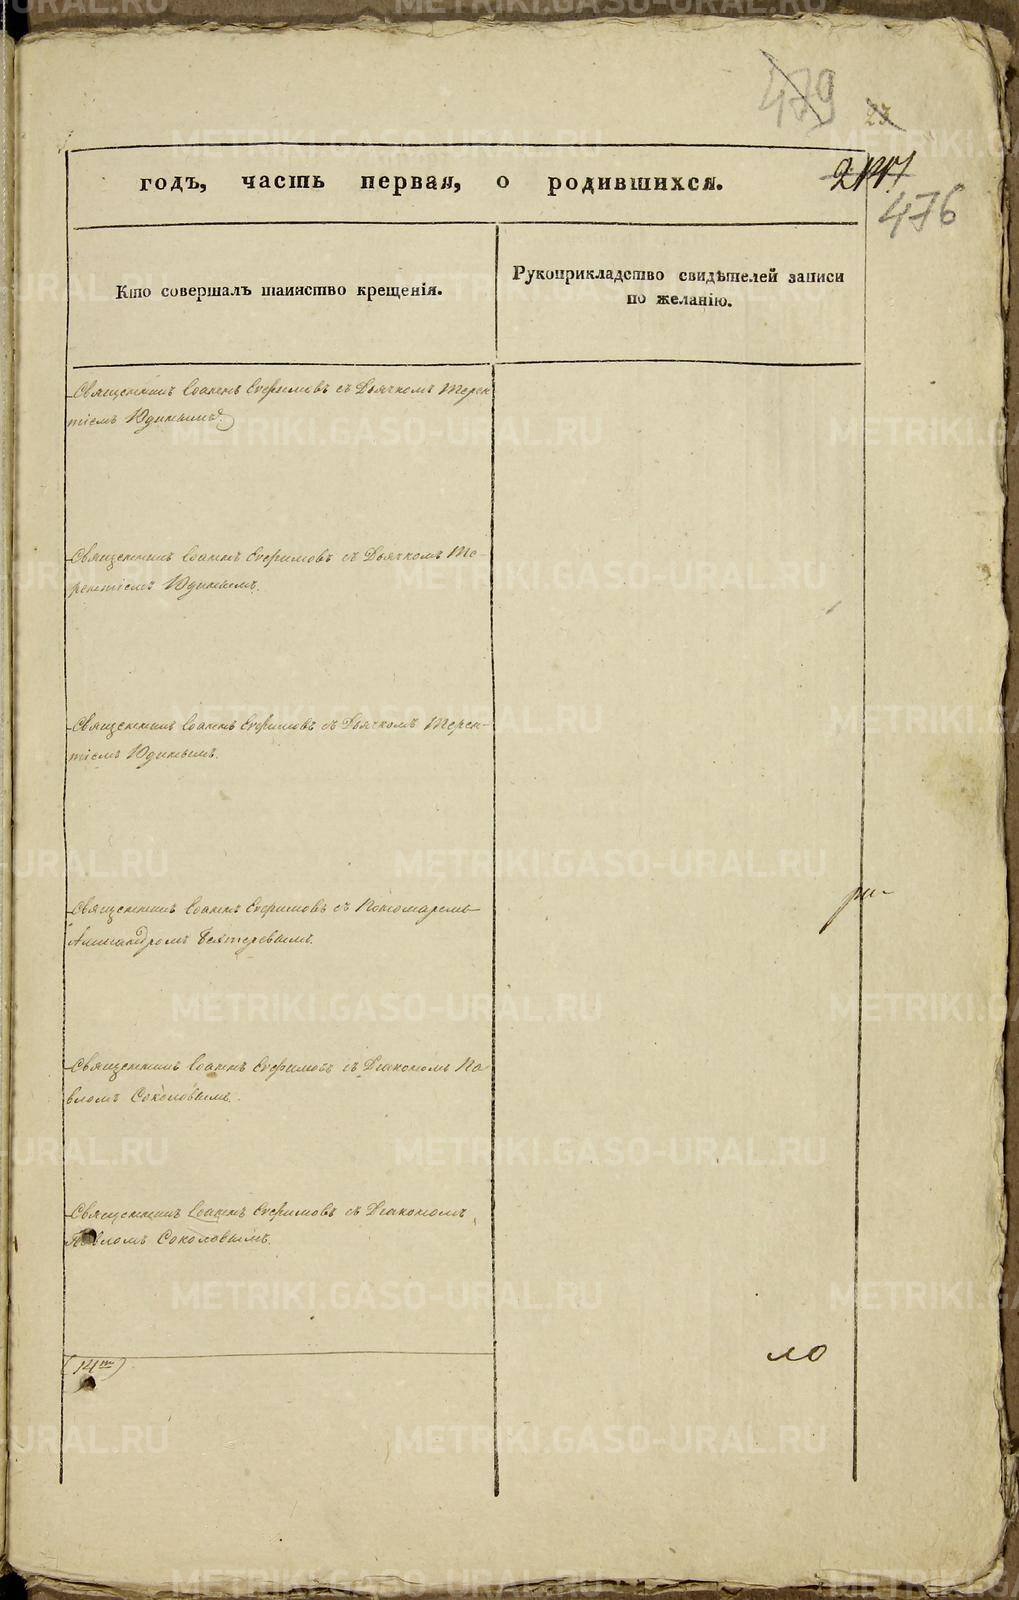 479
23
годъ, часть первая, о родившихся.
476
Кто совершалъ таинство крещенія.
Рукоприкладство свидѣтелей записи
по желанію.
Священникъ Іоаннъ Евфимовъ съ Дьячкомъ Терен
тіемъ Юдинымъ.
Священникъ Іоаннъ Евфимовъ съ Дьячкомъ Те-
рентіемъ Юдинымъ.
Священникъ Іоаннъ Евфимовъ съ Дьячкомъ Терен-
тіемъ Юдинымъ.
Священникъ Іоаннъ Евфимовъ съ Пономаремъ
Александромъ Бехтеревымъ.
Священникъ Іоаннъ Евфимовъ съ Діакономъ Па
вломъ Соколовымъ.
Священникъ Іоаннъ Евфимовъ съ Діакономъ
Павломъ Соколовымъ.
ло
METRIKI.GASO-URAL.RU